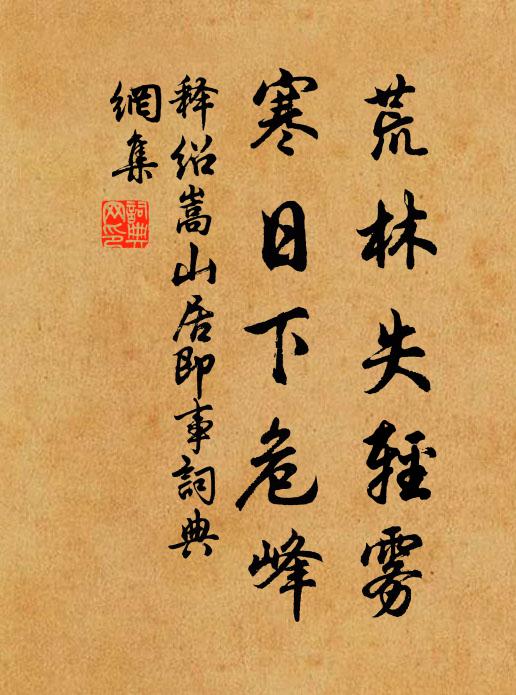 荒林失輕雾
寒日下危峰
释绍嵩山居即事詞典
網集
詞典
网印